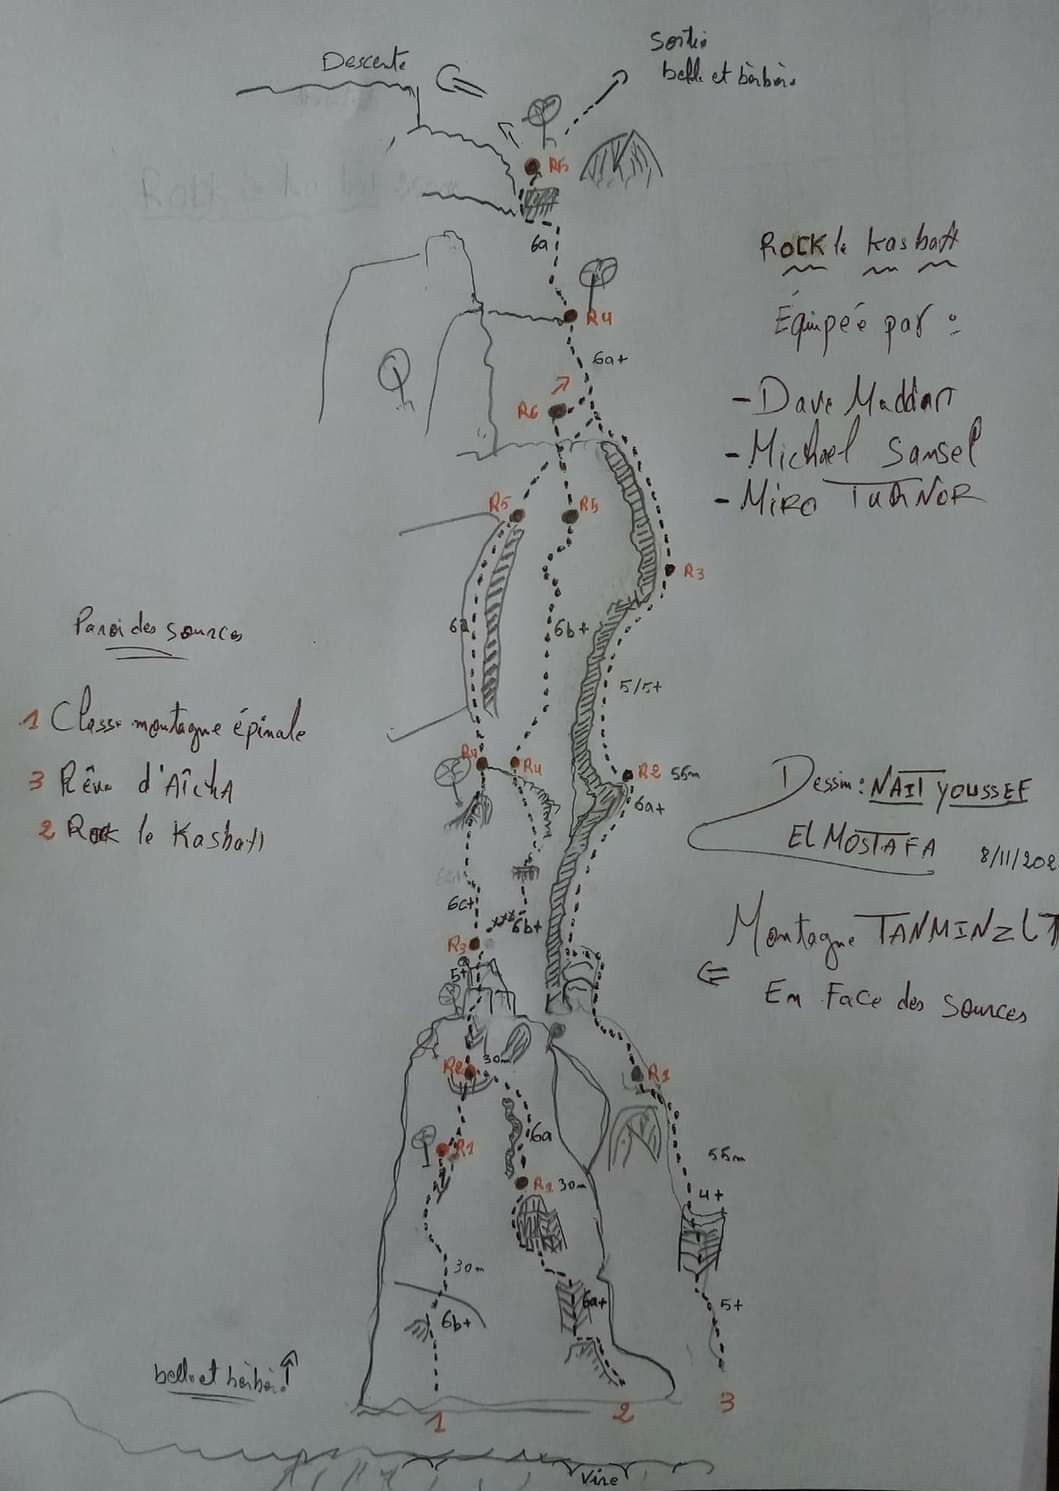 Descente
Sortie
belle et berbère
R5
6a
R4
6a+
R6
R5
R5
R3
6a
6b+
5/5+
R4
R4
R2 55m
6a+
6c+
6b+
R3
5+
30m
R2
R1
R1
6a
R1 30m
55m
4+
30m
6b+
6a+
5+
1
2
3
Vire
Rock le Kasbah
Équipée par :
- Dave Maddart
- Michael Samsel
- Miro TURNOR
Paroi des sources
1 Classe montagne épinale
3 Rêve d'Aîcha
2 Rock le Kasbah
Dessin : NAIT YOUSSEF
EL MOSTAFA
8/11/202
Montagne TANMINZLT
⇐ En Face des sources
belle et berbère ↑